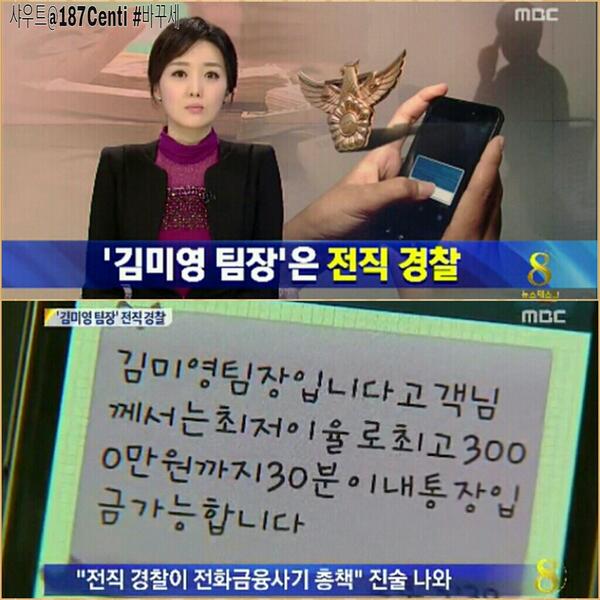 샤우트@187Centi #바꾸세
MBC
'김미영 팀장'은 전직 경찰
8
뉴스데스크
'김미영 팀장' 전직 경찰
MBC
김미영팀장입니다고객님
께서는최저이율로최고300
0만원까지30분이내통장입
금가능합니다
"전직 경찰이 전화금융사기 총책" 진술 나와
8